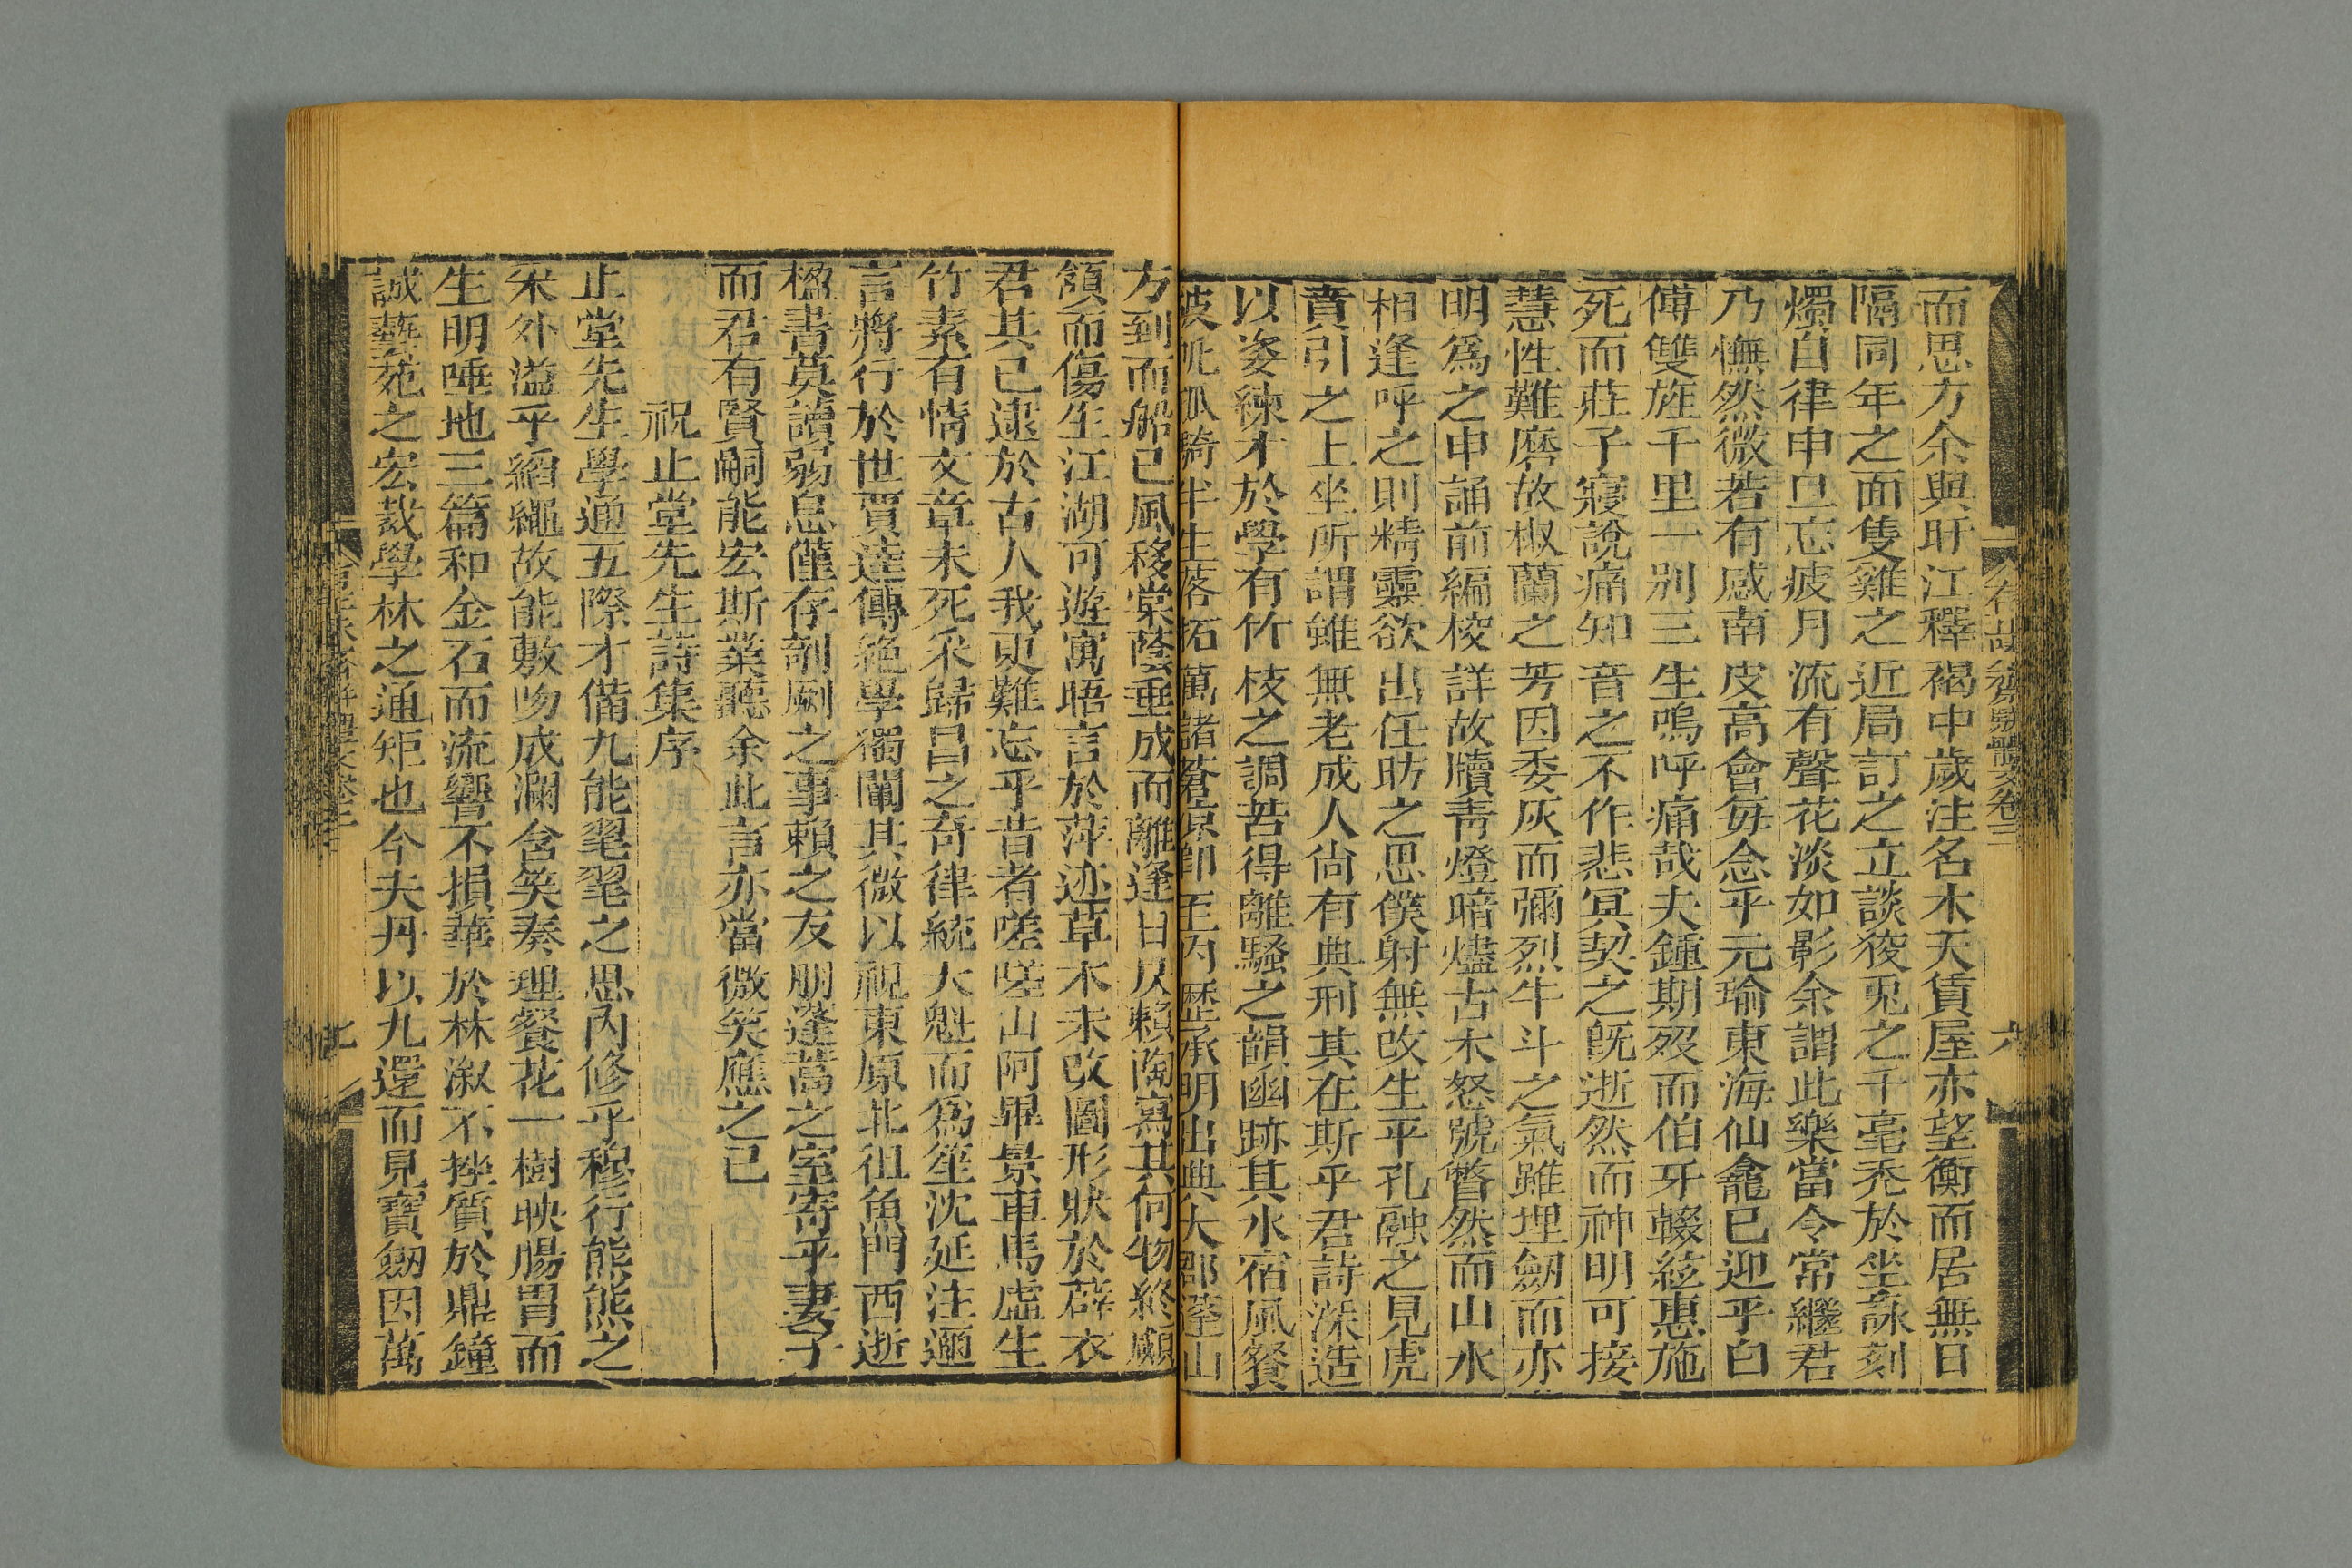 而思方余與盱江釋褐中歲注名木天賃屋亦望衡而居無日
隔同年之面隻雞之近局訂之立談狡兎之千毫禿於坐詠刻
燭自律申旦忘疲月流有聲花淡如影余謂此樂當令常繼君
乃憮然微若有感南皮高會每念乎元瑜東海仙龕已迎乎白
傅雙旌千里一別三生嗚呼痛哉夫鍾期歿而伯牙輟絃惠施
死而莊子寢說痛知音之不作悲冥契之旣逝然而神明可接
慧性難磨故椒蘭之芳因委灰而彌烈牛斗之氣雖埋劒而亦
明爲之申誦前編校詳故牘靑燈暗燼古木怒號瞥然而山水
相逢呼之則精靈欲出任昉之思僕射無改生平孔融之見虎
賁引之上坐所謂雖無老成人尙有典刑其在斯乎君詩深造
以姿練才於學有竹枝之調苦得離騷之韻幽跡其水宿風餐
半生落拓萬諸蒼凉卽至內歷承明出典大郡蓬山
方到而船已風移棠蔭垂成而離逢日仄賴陶寫其何物終顑
頷而傷生江湖可遊寓晤言於萍迹草木未改圖形狀於薜衣
君其已逮於古人我更難忘乎昔者嗟嗟山阿畢景車馬虛生
竹素有情文章未死采歸昌之奇律統大魁而爲笙沈延注邇
言將行於世賈逵傳絶學獨闡其微以視東原北徂魚門西逝
楹書莫讀弱息僅存剞劂之事賴之友朋蓬蒿之室寄乎妻子
而君有賢嗣能宏斯業聽余此言亦當微笑應之已
祝止堂先生詩集序
止堂先生學通五際才備九能毣毣之思內修乎穆行熊熊之
采外溢乎緗繩故能敷吻成瀾含笑奏理餐花一樹映腸胃而
生明唾地三篇和金石而流響不損華於林漵不挫質於鼎鐘
誠藝苑之宏裁學林之通矩也今夫丹以九還而見寶劒因萬